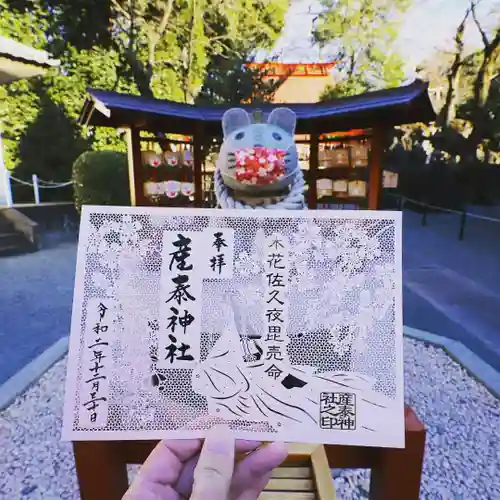 木花佐久夜毘売命
奉拝
産泰神社
令和二年十二月三十日
産泰神
社之印